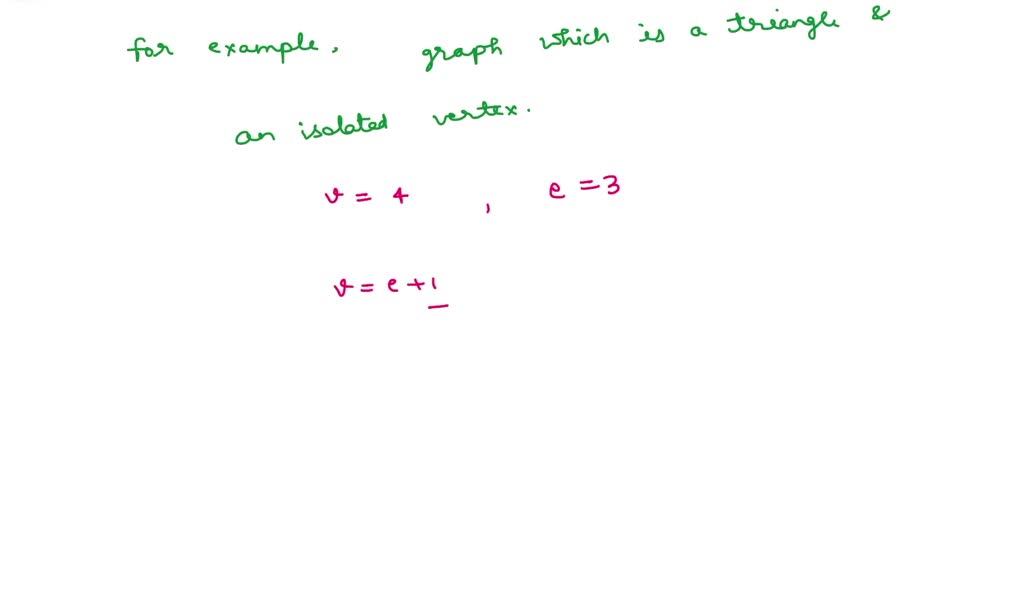 for example. graph which is a triangle &
an isolated vertex.
v = 4 , e = 3
v = e + 1